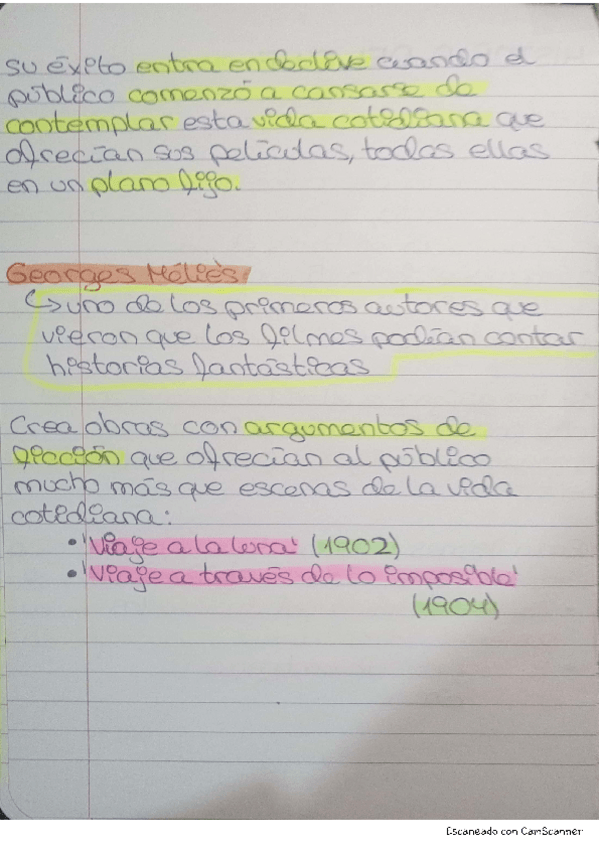 su éxito entra en declive cuando el
público comenzó a cansarse de
contemplar esta vida cotidiana que
ofrecían sus películas, todas ellas
en un plano fijo.
Georges Méliès:
↳ uno de los primeros autores que
vieron que los filmes podían contar
historias fantásticas
Crea obras con argumentos de
ficción que ofrecían al público
mucho más que escenas de la vida
cotidiana:
• 'Viaje a la luna' (1902)
• 'Viaje a través de lo imposible'
(1904)
Escaneado con CamScanner